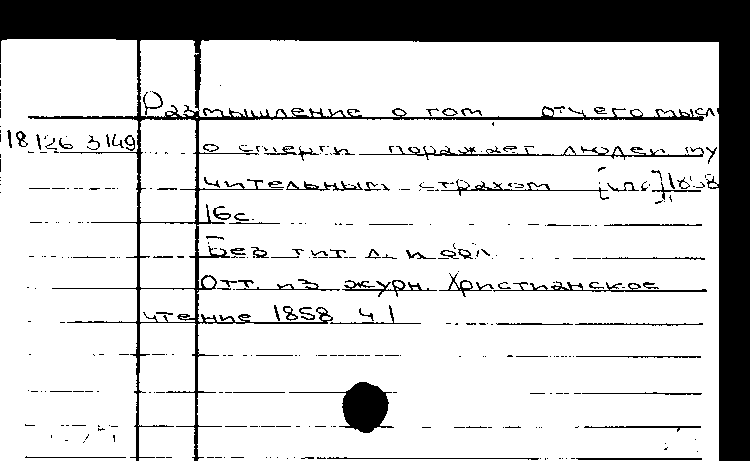 Размышление о том, отчего мысл
18 126 3149 о смерти поражает людей му
чительным страхом [СПб], 1858
16с.
Без тит. л. и обл.
Отт. из журн. Христианское
чтение 1858 ч 1